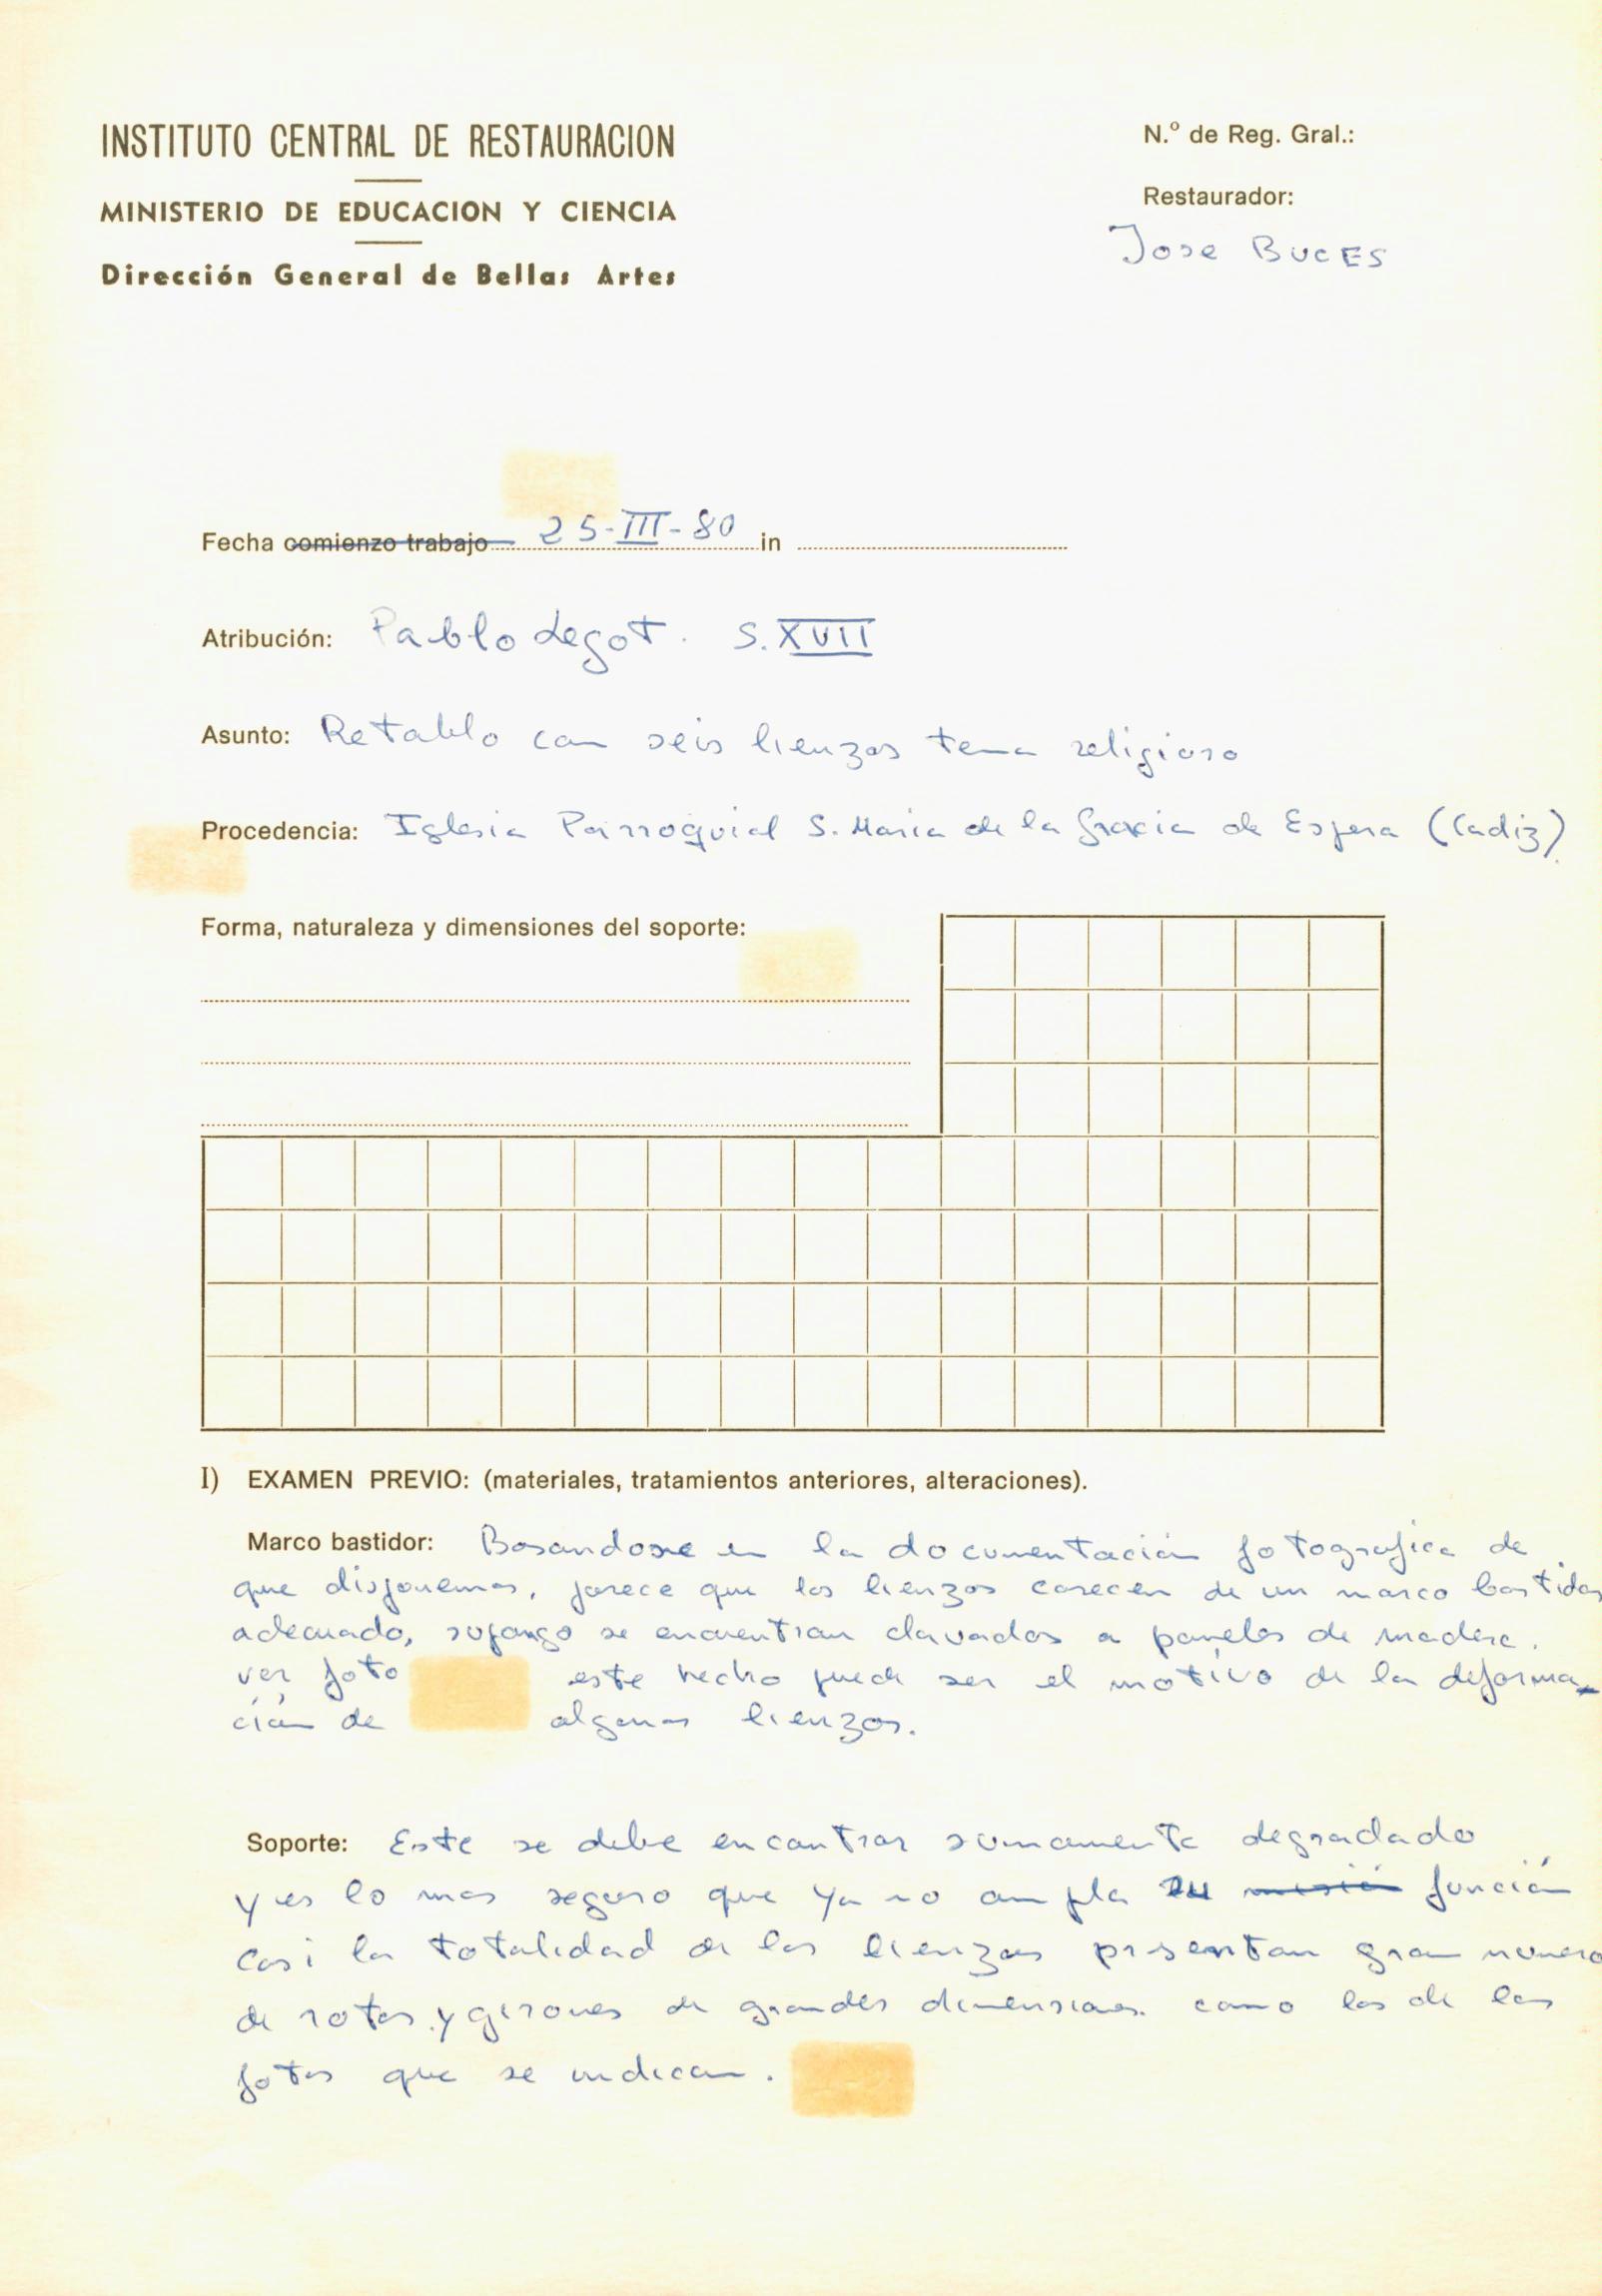 INSTITUTO CENTRAL DE RESTAURACION
MINISTERIO DE EDUCACION Y CIENCIA
Dirección General de Bellas Artes
N.º de Reg. Gral.:
Restaurador:
Jose BUCES
Fecha comienzo trabajo 25-III-80 in
Atribución: Pablo Legot. S. XVII
Asunto: Retablo con seis lienzos tema religioso
Procedencia: Iglesia Parroquial S. Maria de la Gracia de Espera (Cadiz)
Forma, naturaleza y dimensiones del soporte:
I) EXAMEN PREVIO: (materiales, tratamientos anteriores, alteraciones).
Marco bastidor: Basandose en la documentación fotografica de
que disponemos, parece que los lienzos carecen de un marco bastidor
adecuado, supongo se encuentran clavados a paneles de madera.
ver foto este hecho puede ser el motivo de la deforma-
ción de algunos lienzos.
Soporte: Este se debe encontrar sumamente degradado
y es lo mas seguro que ya no cumpla su misión función
casi la totalidad de los lienzos presentan gran numero
de rotos y girones de grandes dimensiones. como los de las
fotos que se indican.